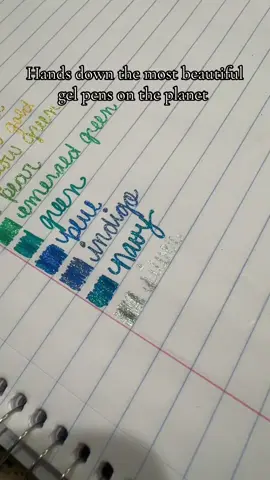 Hands down the most beautiful
gel pens on the planet
gold
green
pear
emerald green
green
blue
indigo
navy
silver